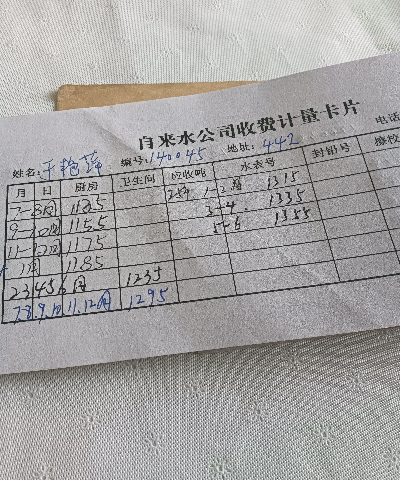 自来水公司收费计量卡片
姓名: 编号:140045 地址:442 电话
月 日 厨房 卫生间 应收吨 水表号 封铅号
7-8月 1135 25吨 1-2月 1315
9-10月 1155 3-4 1335
11-12月 1175 5-6 1355
1月 1185
23456月 1235
789.10 11.12月 1295